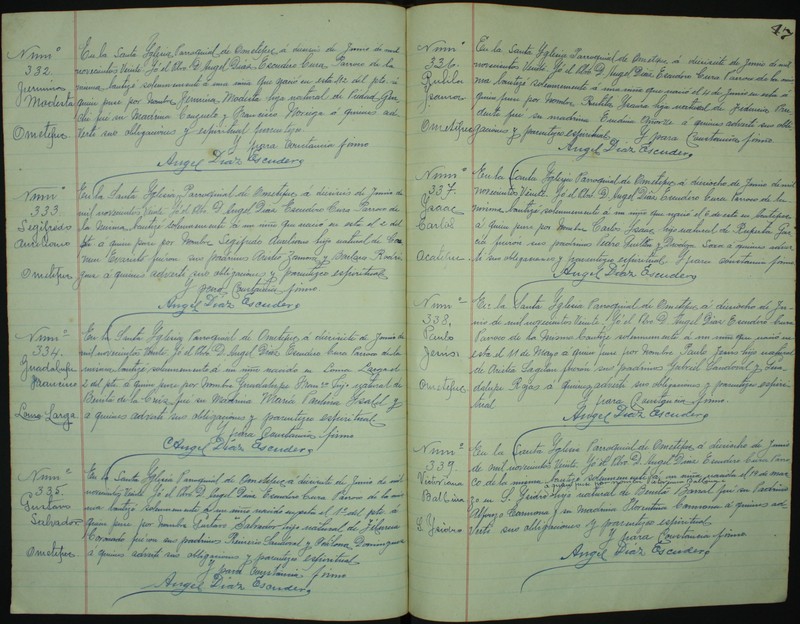 Num°
332.
Modesta
Ometepe
En la Santa Yglesia Parroquial de Ometepe, á dieciseis de Junio de mil
novecientos Veinte. Yó el Pbro. D. Angel Diaz Escudero Cura Parroco de la
misma, bautizé solemnemente á una niña que nació en esta el 2 del pte. á
quien puse por nombre Modesta hija natural de
y Francisco á quienes ad-
vertí sus obligaciones y espiritual parentezco.
Y para Constancia firmo
Angel Diaz Escudero
Num°
333.
Sigifredo
Aureliano
Ometepe
En la Santa Yglesia Parroquial de Ometepe á dieciseis de Junio de
mil novecientos Veinte. Yó el Pbro. D. Angel Diaz Escudero Cura Parroco de
la misma, bautizé solemnemente á un niño que nació en esta el 2 del
pte á quien puse por Nombre Sigifredo Aureliano hijo natural de
fueron sus padrinos y Rodri-
guez á quienes advertí sus obligaciones y parentezco espiritual
Y para Constancia firmo.
Angel Diaz Escudero
Num°
334.
Guadalupe
Francisco
Loma Larga
En la Santa Yglesia Parroquial de Ometepe, á diecisiete de Junio de
mil novecientos Veinte. Yó el Pbro. D. Angel Diaz Escudero Cura Parroco de la
misma bautizé solemnemente á un niño nacido en Loma Larga el
2 del pte. á quien puse por nombre Guadalupe hijo natural de
Benita de la Cruz, fué su Madrina Maria Ysabel
á quienes advertí sus obligaciones y parentezco espiritual
Y para Constancia firmo
Angel Diaz Escudero
Num°
335.
Gustavo
Salvador
Ometepe
En la Santa Yglesia Parroquial de Ometepe, á diecisiete de Junio de mil
novecientos Veinte. Yó el Pbro. D. Angel Diaz Escudero Cura Parroco de la mis-
ma bautizé solemnemente á un niño nacido en esta el 1° del pte. á
quien puse por nombre Gustavo Salvador hijo natural de
Coronado fueron sus padrinos Sandoval y Paulina Dominguez
á quienes advertí sus obligaciones y parentezco espiritual
Y para Constancia firmo
Angel Diaz Escudero
47
Num°
336.
Rutila
Ysaura
Ometepe
En la Santa Yglesia Parroquial de Ometepe á diecisiete de Junio de mil
novecientos Veinte. Yó el Pbro. D. Angel Diaz Escudero Cura Parroco de la mis-
ma bautizé solemnemente á una niña que nació el 4 de Junio en esta á
quien puse por nombre Rutila Ysaura hija natural de Federica
fué su madrina á quienes advertí sus obli-
gaciones y parentezco espiritual. Y para Constancia firmo.
Angel Diaz Escudero
Num°
337.
Ysaac
Carlos
En la Santa Yglesia Parroquial de Ometepe, á dieciocho de Junio de mil
novecientos Veinte. Yó el Pbro. D. Angel Diaz Escudero Cura Parroco de la
misma, bautizé solemnemente á un niño que nació el 6 de este en
á quien puse por nombre Carlos Ysaac, hijo natural de Gar-
cia fueron sus padrinos Pedro y á quienes adver-
tí sus obligaciones y parentezco espiritual. Y para constancia firmo
Angel Diaz Escudero
Num°
338,
Paulo
Jesus.
Ometepe
En la Santa Yglesia Parroquial de Ometepe, á dieciocho de Ju-
nio de mil novecientos Veinte. Yó el Pbro. D. Angel Diaz Escudero Cura
Parroco de la Misma bautizé solemnemente á un niño que nació en
esta el 1° de Mayo á quien puse por nombre Paulo Jesus hijo natural
de fueron sus padrinos Gabriel Sandoval y Gua-
dalupe Rojas á quienes advertí sus obligaciones y parentezco espiri-
tual Y para Constancia firmo.
Angel Diaz Escudero
Num°
339.
Balbina
S. Ysidro
En la Santa Yglesia Parroquial de Ometepe, á dieciocho de Junio
de mil novecientos Veinte. Yó el Pbro. D. Angel Diaz Escudero Cura Parro-
co de la misma bautizé solemnemente una niña nacida el 19 de
en S. Ysidro hija natural de Benita fué su Padrino
Alfonzo Carmona y su madrina Florentina Carmona á quienes ad-
vertí sus obligaciones y parentezco espiritual
Y para Constancia firmo
Angel Diaz Escudero